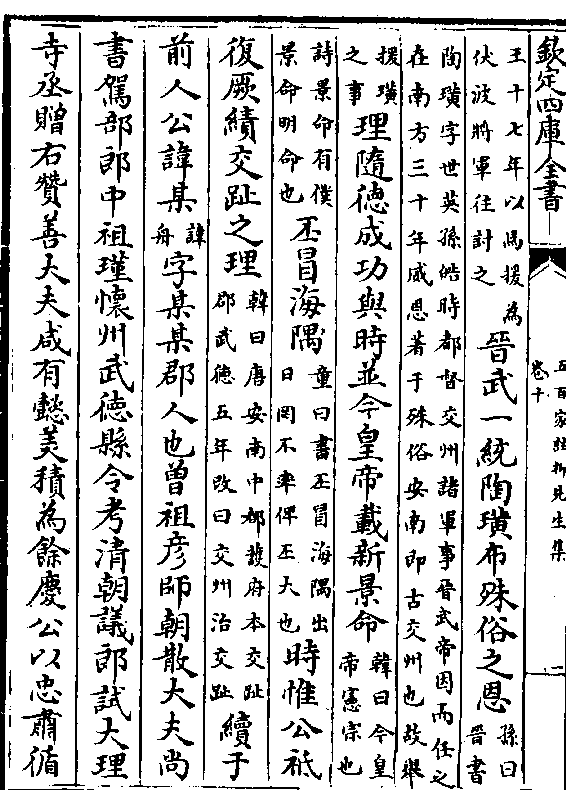 欽定四庫全書
五百家註柳先生集
卷十
二
王十七年以馬援為
伏波將軍往討之
晉武一統陶璜布殊俗之恩
孫曰
晉書
陶璜字世英孫皓時都督交州諸軍事晉武帝因而任之
在南方三十年威恩著于殊俗安南即古交州也故舉
援璜
之事
理隨德成功與時並今皇帝載新景命
韓曰今皇
帝憲宗也
詩景命有僕
景命明命也
丕冒海隅
童曰書丕冒海隅出
日罔不率俾丕大也
時惟公祗
復厥績交趾之理
韓曰唐安南中都護府本交趾
郡武德五年改曰交州治交趾
續于
前人公諱某
諱
舟
字某某郡人也曾祖彥師朝散大夫尚
書駕部郎中祖瑾懷州武德縣令考清朝議郎試大理
寺丞贈右贊善大夫咸有懿美積為餘慶公以忠肅循